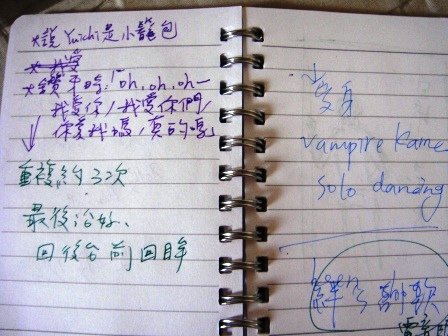 *說Yuichi是小籠包
*我愛
*鑽平時,「oh,oh,oh—
我愛你/我愛你們/
你愛我嗎/真的嗎」
重複約3次
最後治好、
回後台前回眸
↓變身
vampire Kame
solo dancing